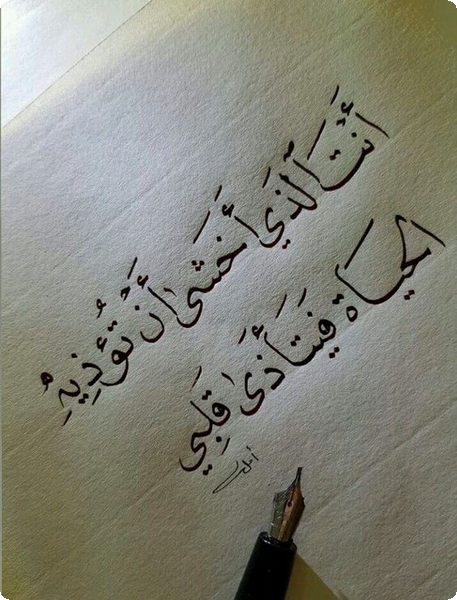 أَنْتَ الَّذي أَخشَىٰ أَن تُؤذِيهِ
الحياة فيَتَأَذَىٰ قَلِبي